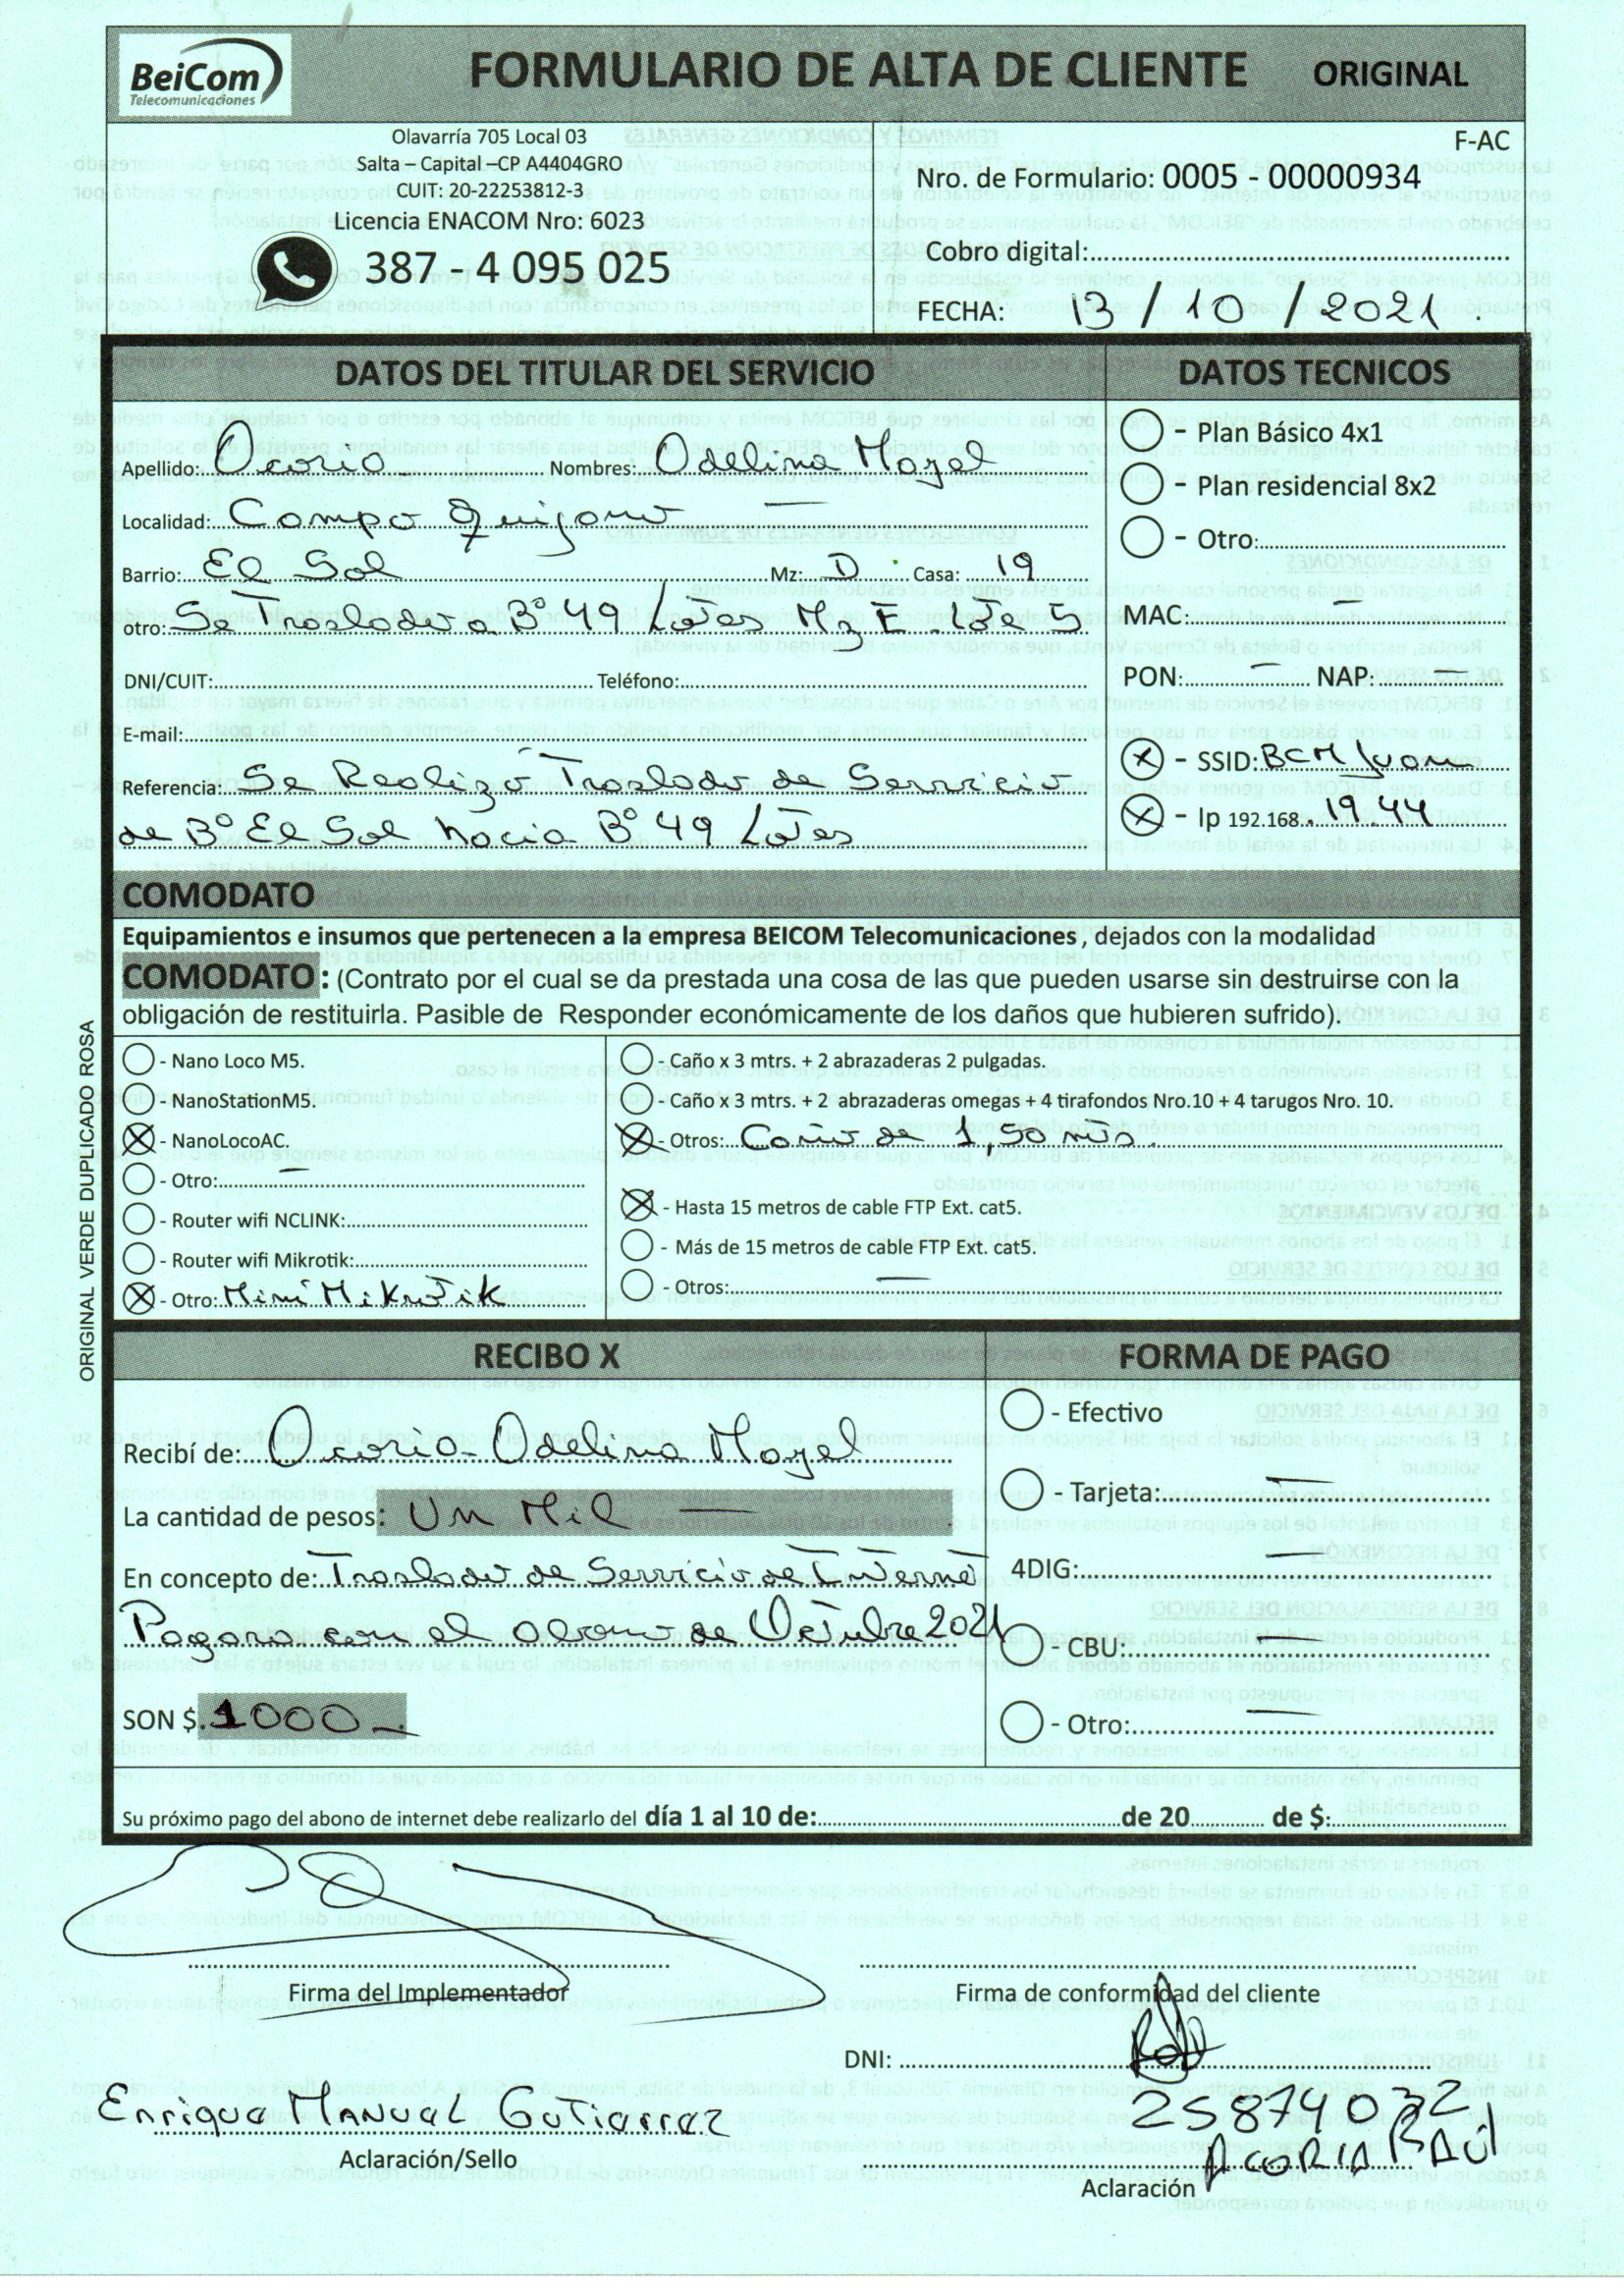 BeiCom
Telecomunicaciones
FORMULARIO DE ALTA DE CLIENTE ORIGINAL
Olavarría 705 Local 03
Salta – Capital –CP A4404GRO
CUIT: 20-22253812-3
Licencia ENACOM Nro: 6023
387 - 4 095 025
F-AC
Nro. de Formulario: 0005- 00000934
Cobro digital:
FECHA: 13 / 10 / 2021.
DATOS DEL TITULAR DEL SERVICIO
Apellido: Nombres: Odelina
Localidad: Campo Quijano
Barrio: El Sol Mz: D Casa: 19
otro: Se Traslado a B° 49 Lotes Mz E Lote 5
DNI/CUIT: Teléfono:
E-mail:
Referencia: Se Realizó Traslado de Servicio
de B° El Sol hacia B° 49 Lotes
DATOS TECNICOS
- Plan Básico 4x1
- Plan residencial 8x2
- Otro:
MAC: —
PON: — NAP: —
X - SSID: BCM Juan
X - Ip 192.168.. 19.44
COMODATO
Equipamientos e insumos que pertenecen a la empresa BEICOM Telecomunicaciones, dejados con la modalidad
COMODATO: (Contrato por el cual se da prestada una cosa de las que pueden usarse sin destruirse con la
obligación de restituirla. Pasible de Responder económicamente de los daños que hubieren sufrido).
- Nano Loco M5.
- NanoStationM5.
X - NanoLocoAC.
- Otro: —
- Router wifi NCLINK:
- Router wifi Mikrotik:
X - Otro: Mini Mikrotik
- Caño x 3 mtrs. + 2 abrazaderas 2 pulgadas.
- Caño x 3 mtrs. + 2 abrazaderas omegas + 4 tirafondos Nro.10 + 4 tarugos Nro. 10.
X - Otros: Caño de 1,50 mts.
X - Hasta 15 metros de cable FTP Ext. cat5.
- Más de 15 metros de cable FTP Ext. cat5.
- Otros: —
ORIGINAL VERDE DUPLICADO ROSA
RECIBO X
Recibí de: Odelina
La cantidad de pesos: Un Mil —
En concepto de: Traslado de Servicio de Internet
Pagara con el abono de Octubre 2021
SON $. 1000 —
FORMA DE PAGO
- Efectivo
- Tarjeta: —
4DIG: —
- CBU: —
- Otro: —
Su próximo pago del abono de internet debe realizarlo del día 1 al 10 de: de 20 de $:
Firma del Implementador
Firma de conformidad del cliente
DNI:
Enrique Manual Gutierrez
25874032
Aclaración/Sello
Aclaración